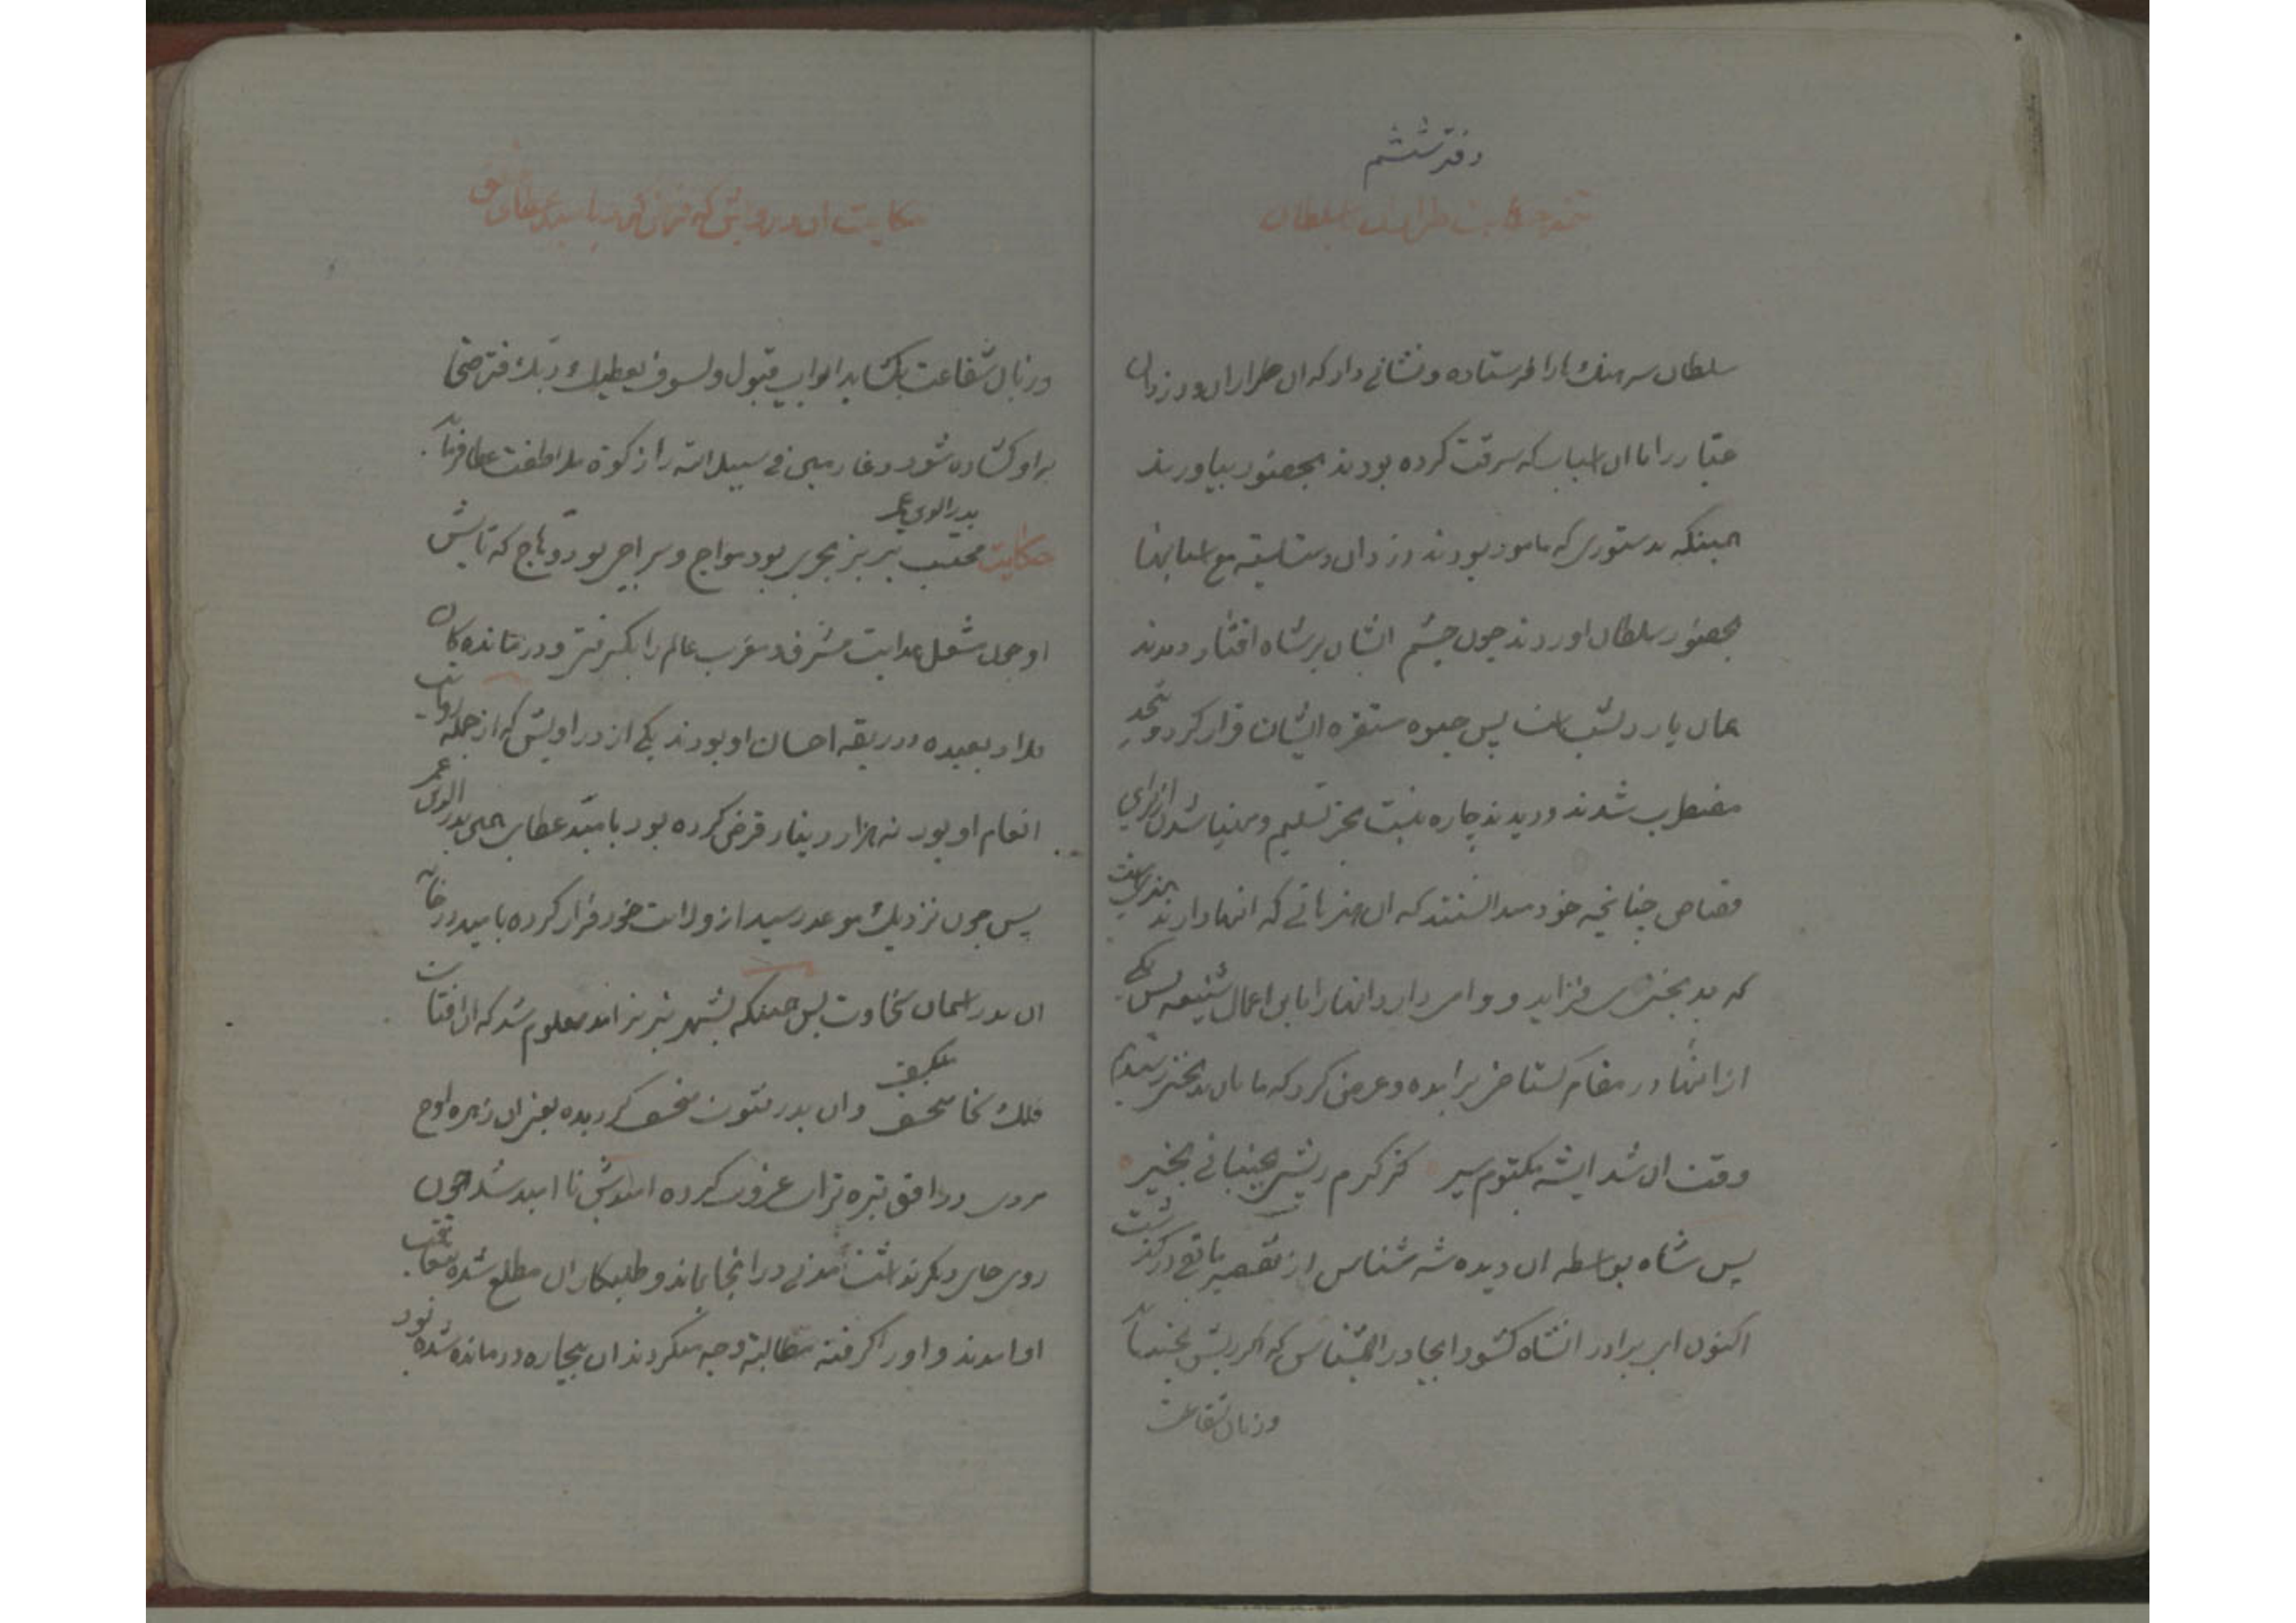 دفتر ششم
تتمه حکایت طراران با سلطان
سلطان سرهنک را فرستاده و نشانی داد که ان طراران و دزدان
عیار را با ان اسباب که سرقت کرده بودند بحضور بیاورند
همینکه بدستوری که مامور بودند دزدان دست بسته مع اسبابها
بحضور سلطان اوردند چون چشم ایشان بر شاه افتاد دیدند
همان یار دلشب است پس جیوه ستقره ایشان فرار کرد و متحیر
مضطرب شدند و دیدند چاره نیست بجز تسلیم و مهیا شدن از برای
قصاص چنانچه خود میدانستند که ان هنرهائی که انها دارند
که بدبختی می فزاید و وامی دارد انها را باین اعمال شنیعه پس یکی
از انها در مقام کستاخی برامده و عرض کرد که ما بان بدبختی رسیدیم
وقت ان شد ایشه مکتوم سیر کز کرم ریشی بجنبانی بخیر
پس شاه بواسطه ان دیده شه شناس از تقصیر مابقی درگذشت
اکنون ای برادر انشاه کشور ایجاد را بشناس که اگر ریش بجنباند
و زبان شفاعت
حکایت ان درویش که قرض کرد بامید عطای
و زبان شفاعت بکشاید ابواب قبول ولسوف یعطیک ربک فترضی
بر او کشاده شود وغارمین فی سبیل الله را از زکوة ملاطفت عطا فرماید
حکایت محتسب تبریز بحری بود مواج و سراجی بود وهاج که تابش
بدرالدین عمر
او چون شعل هدایت مشرق و مغرب عالم را بگرفته و درمانده کان
بلاد بعیده در ربقه احسان او بودند یکی از دراویش که از جمله
انعام او بود نه هزار دینار قرض کرده بود بامید عطای بدرالدین عمر
پس چون نزدیک موعد رسید از ولایت خود فرار کرده بامید در خانه
ان بدر اسمان سخاوت پس همینکه بشهر تبریز امد معلوم شد که ان افتاب
فلک سخا منکسف و ان بدر فتوت منخسف کردیده یعنی ان زهره اوج
مردی در افق تیره تراب غروب کرده امیدش ناامید شد چون
روی جای دیگر نداشت مدتی در انجا بماند و طلبکاران مطلع شده
او امدند و او را کرفته مطالبته وجه میکردند ان بیچاره درمانده شده بود